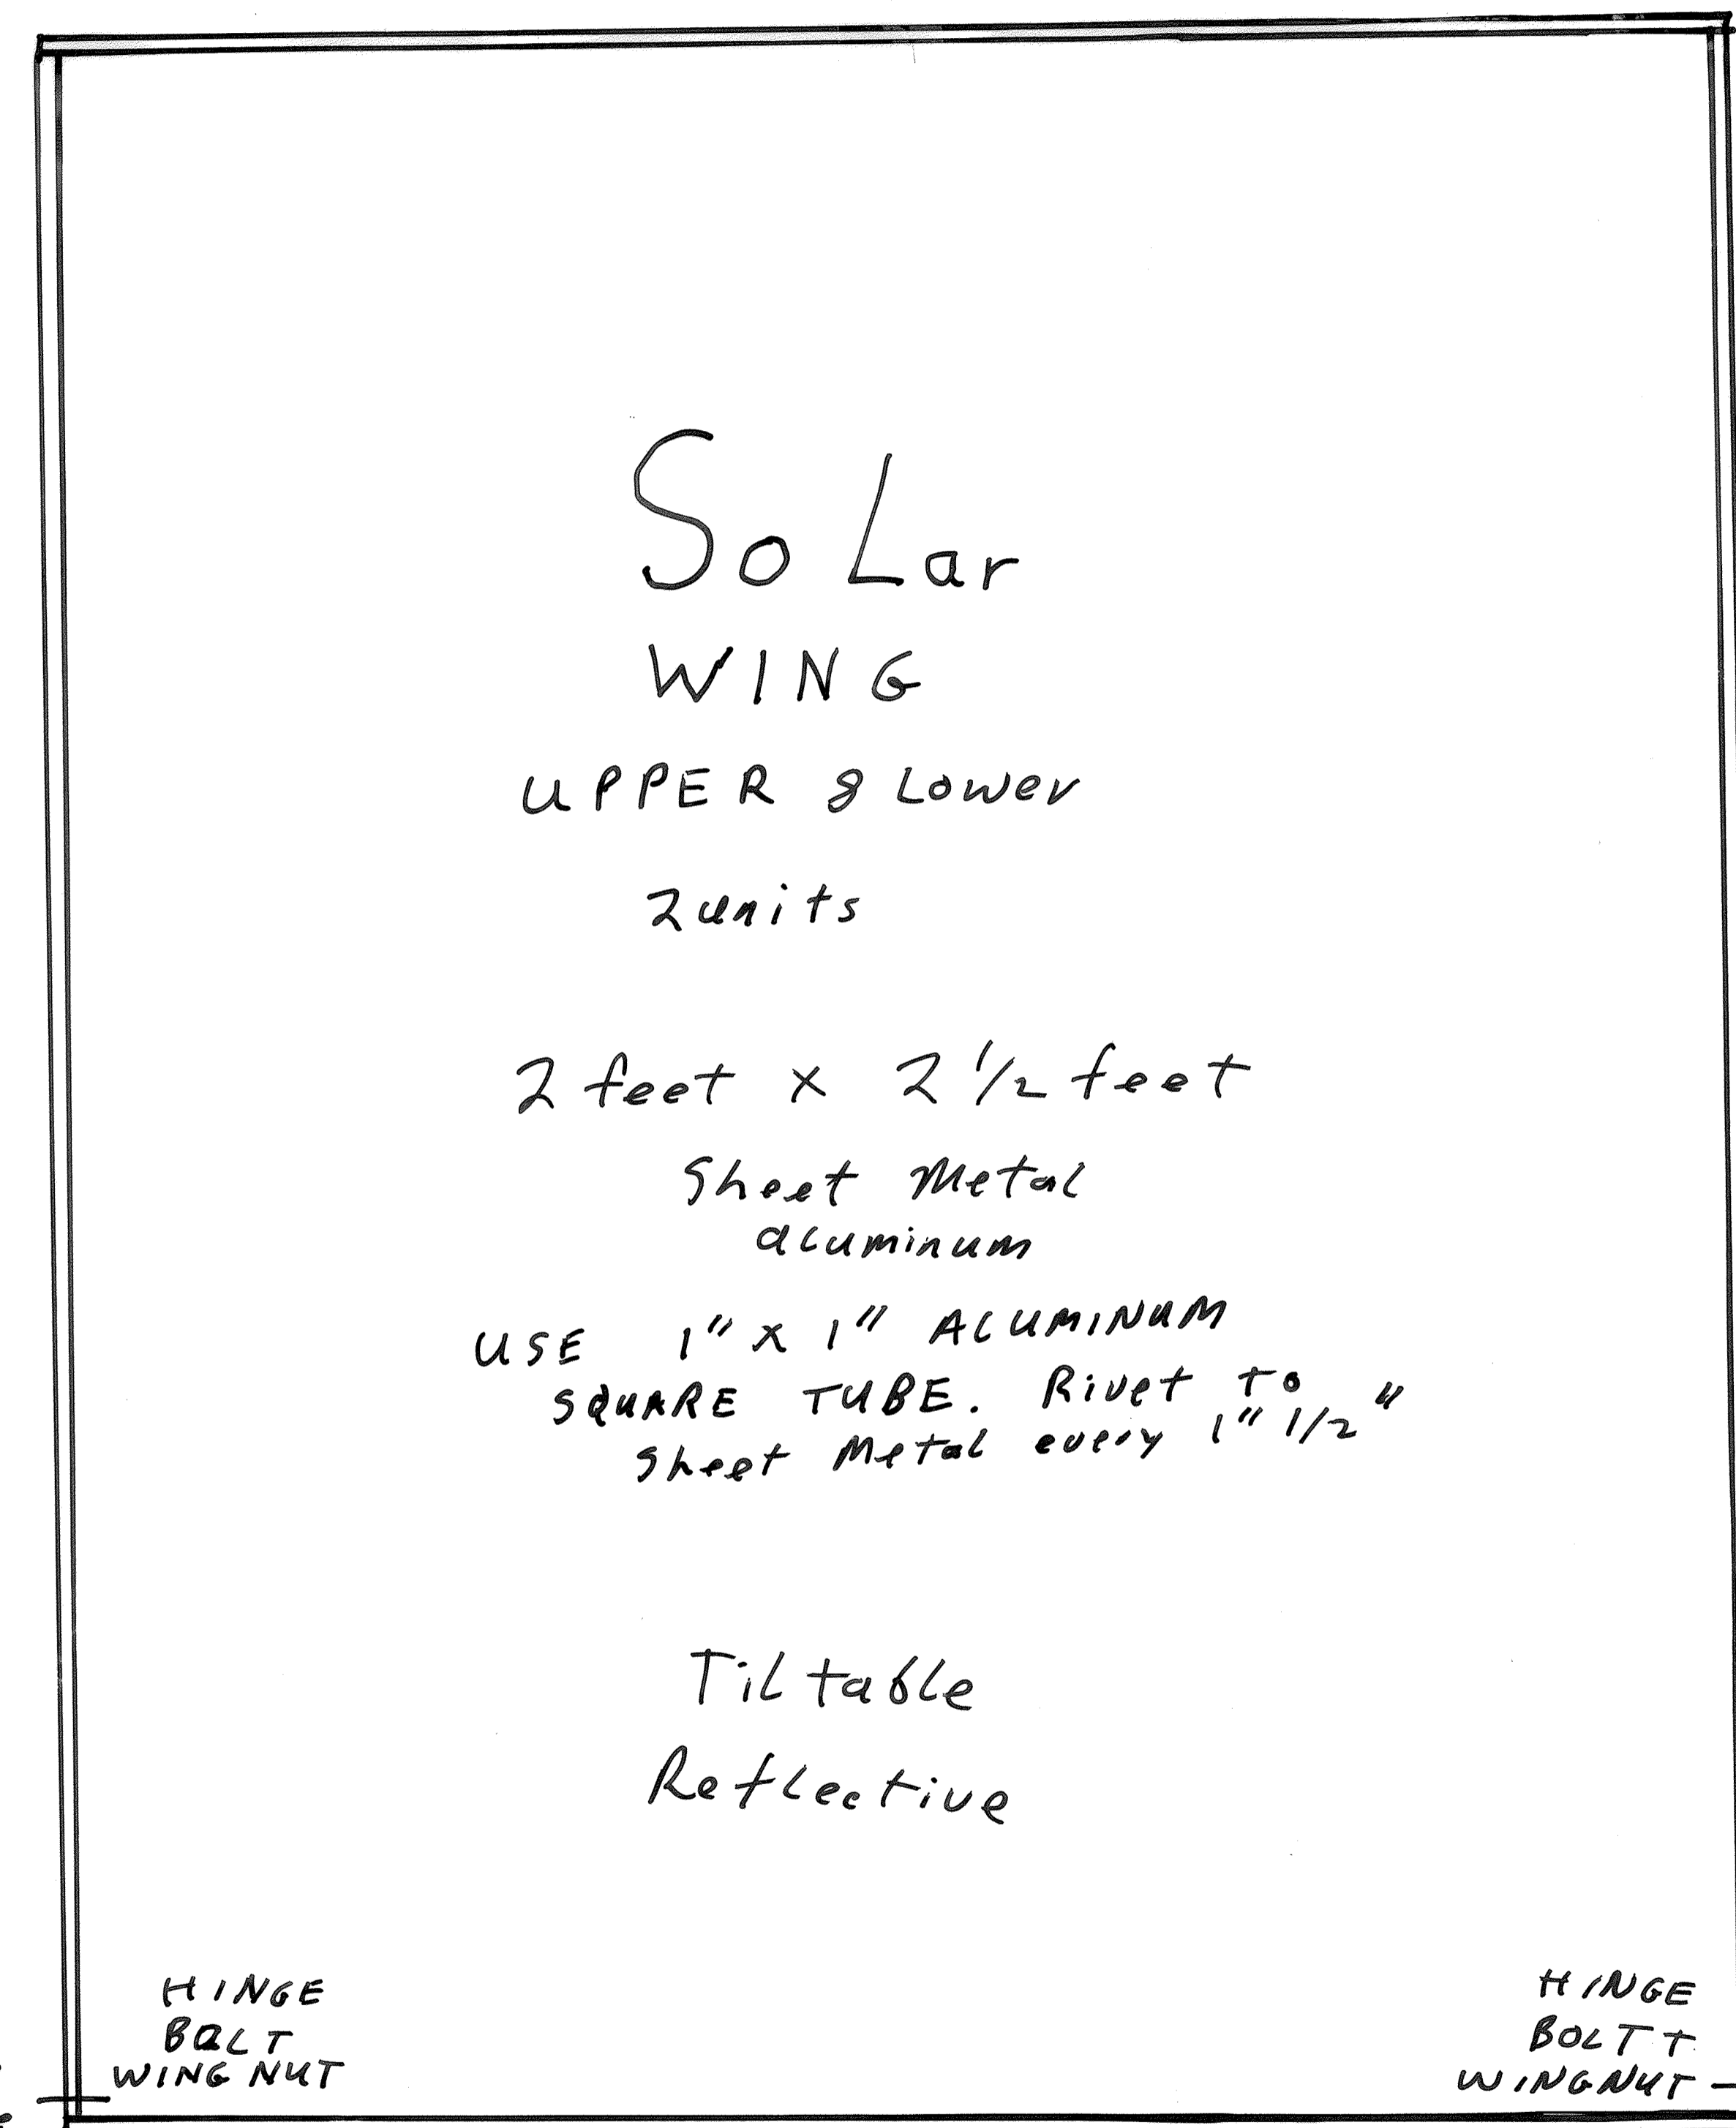 SoLar
WING
UPPER & Lower
2 units
2 feet x 2 1/2 feet
Sheet Metal
aluminum
USE 1" x 1" ALUMINUM
SQUARE TUBE. Rivet to
Sheet Metal every 1" 1/2"
Tiltable
Reflective
HINGE
BOLT
WING NUT
HINGE
BOLT +
WINGNUT